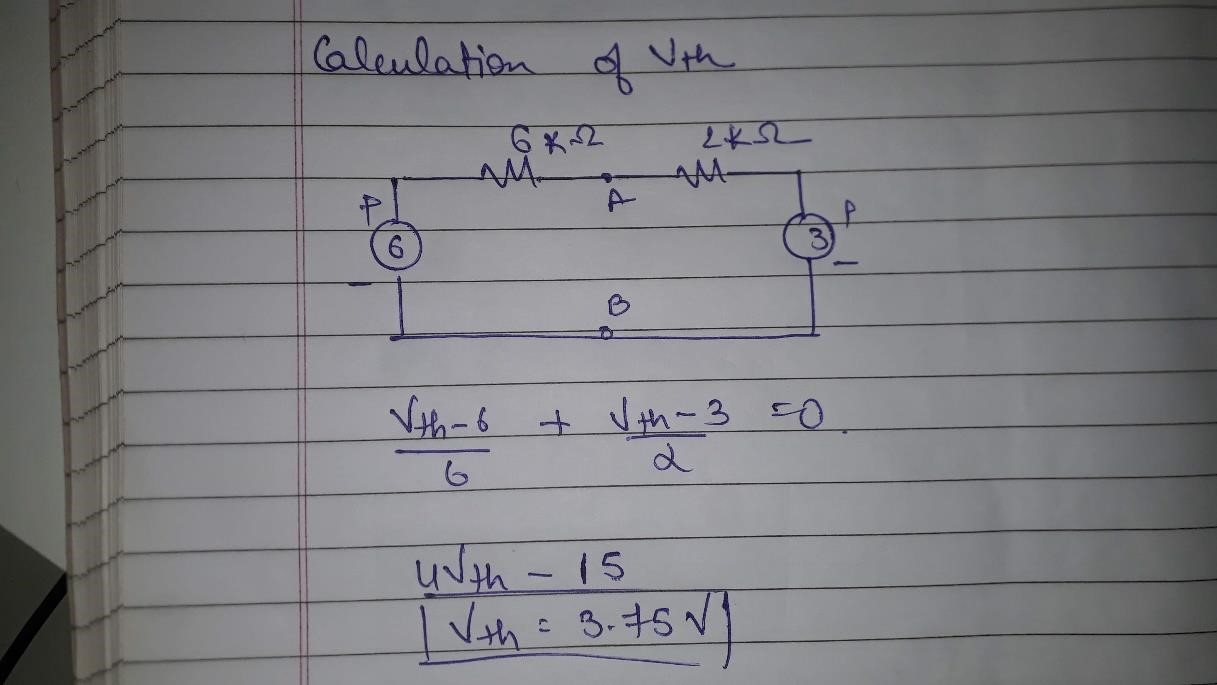 Calculation of Vth
6KΩ 2KΩ
P A P
6 3
- -
B
Vth-6 + Vth-3 =0.
6 2
4Vth - 15
Vth = 3.75V